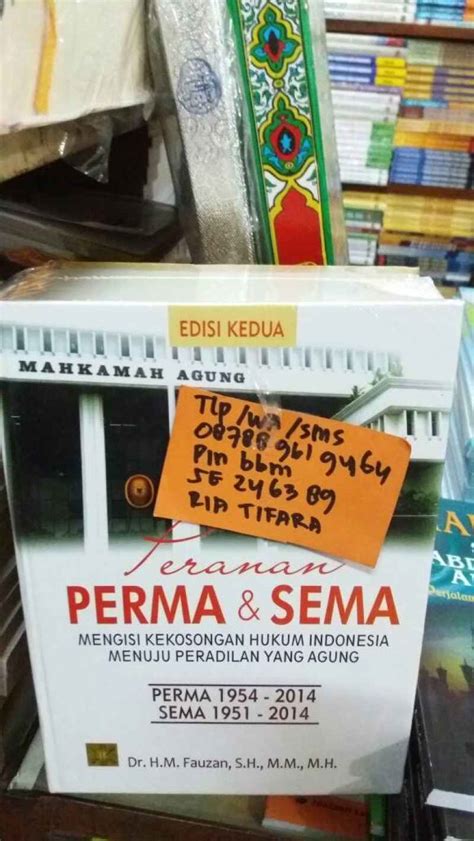 EDISI KEDUA
MAHKAMAH AGUNG
Tlp/WA/SMS
08788 961 9464
Pin bbm
5E 2463 B9
RIA TIFARA
Peranan
PERMA & SEMA
MENGISI KEKOSONGAN HUKUM INDONESIA
MENUJU PERADILAN YANG AGUNG
PERMA 1954 - 2014
SEMA 1951 - 2014
Dr. H.M. Fauzan, S.H., M.M., M.H.